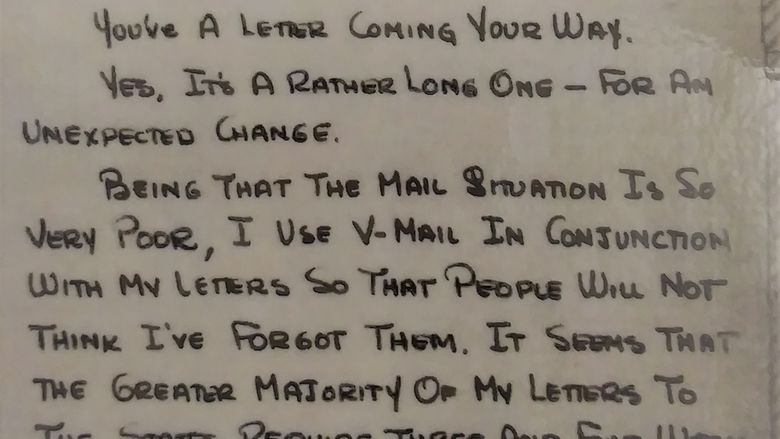 You've A Letter Coming Your Way.
Yes, It's A Rather Long One – For An
Unexpected Change.
Being That The Mail Situation Is So
Very Poor, I Use V-Mail In Conjunction
With My Letters So That People Will Not
Think I've Forgot Them. It Seems That
The Greater Majority Of My Letters To
The States Require Three And Five